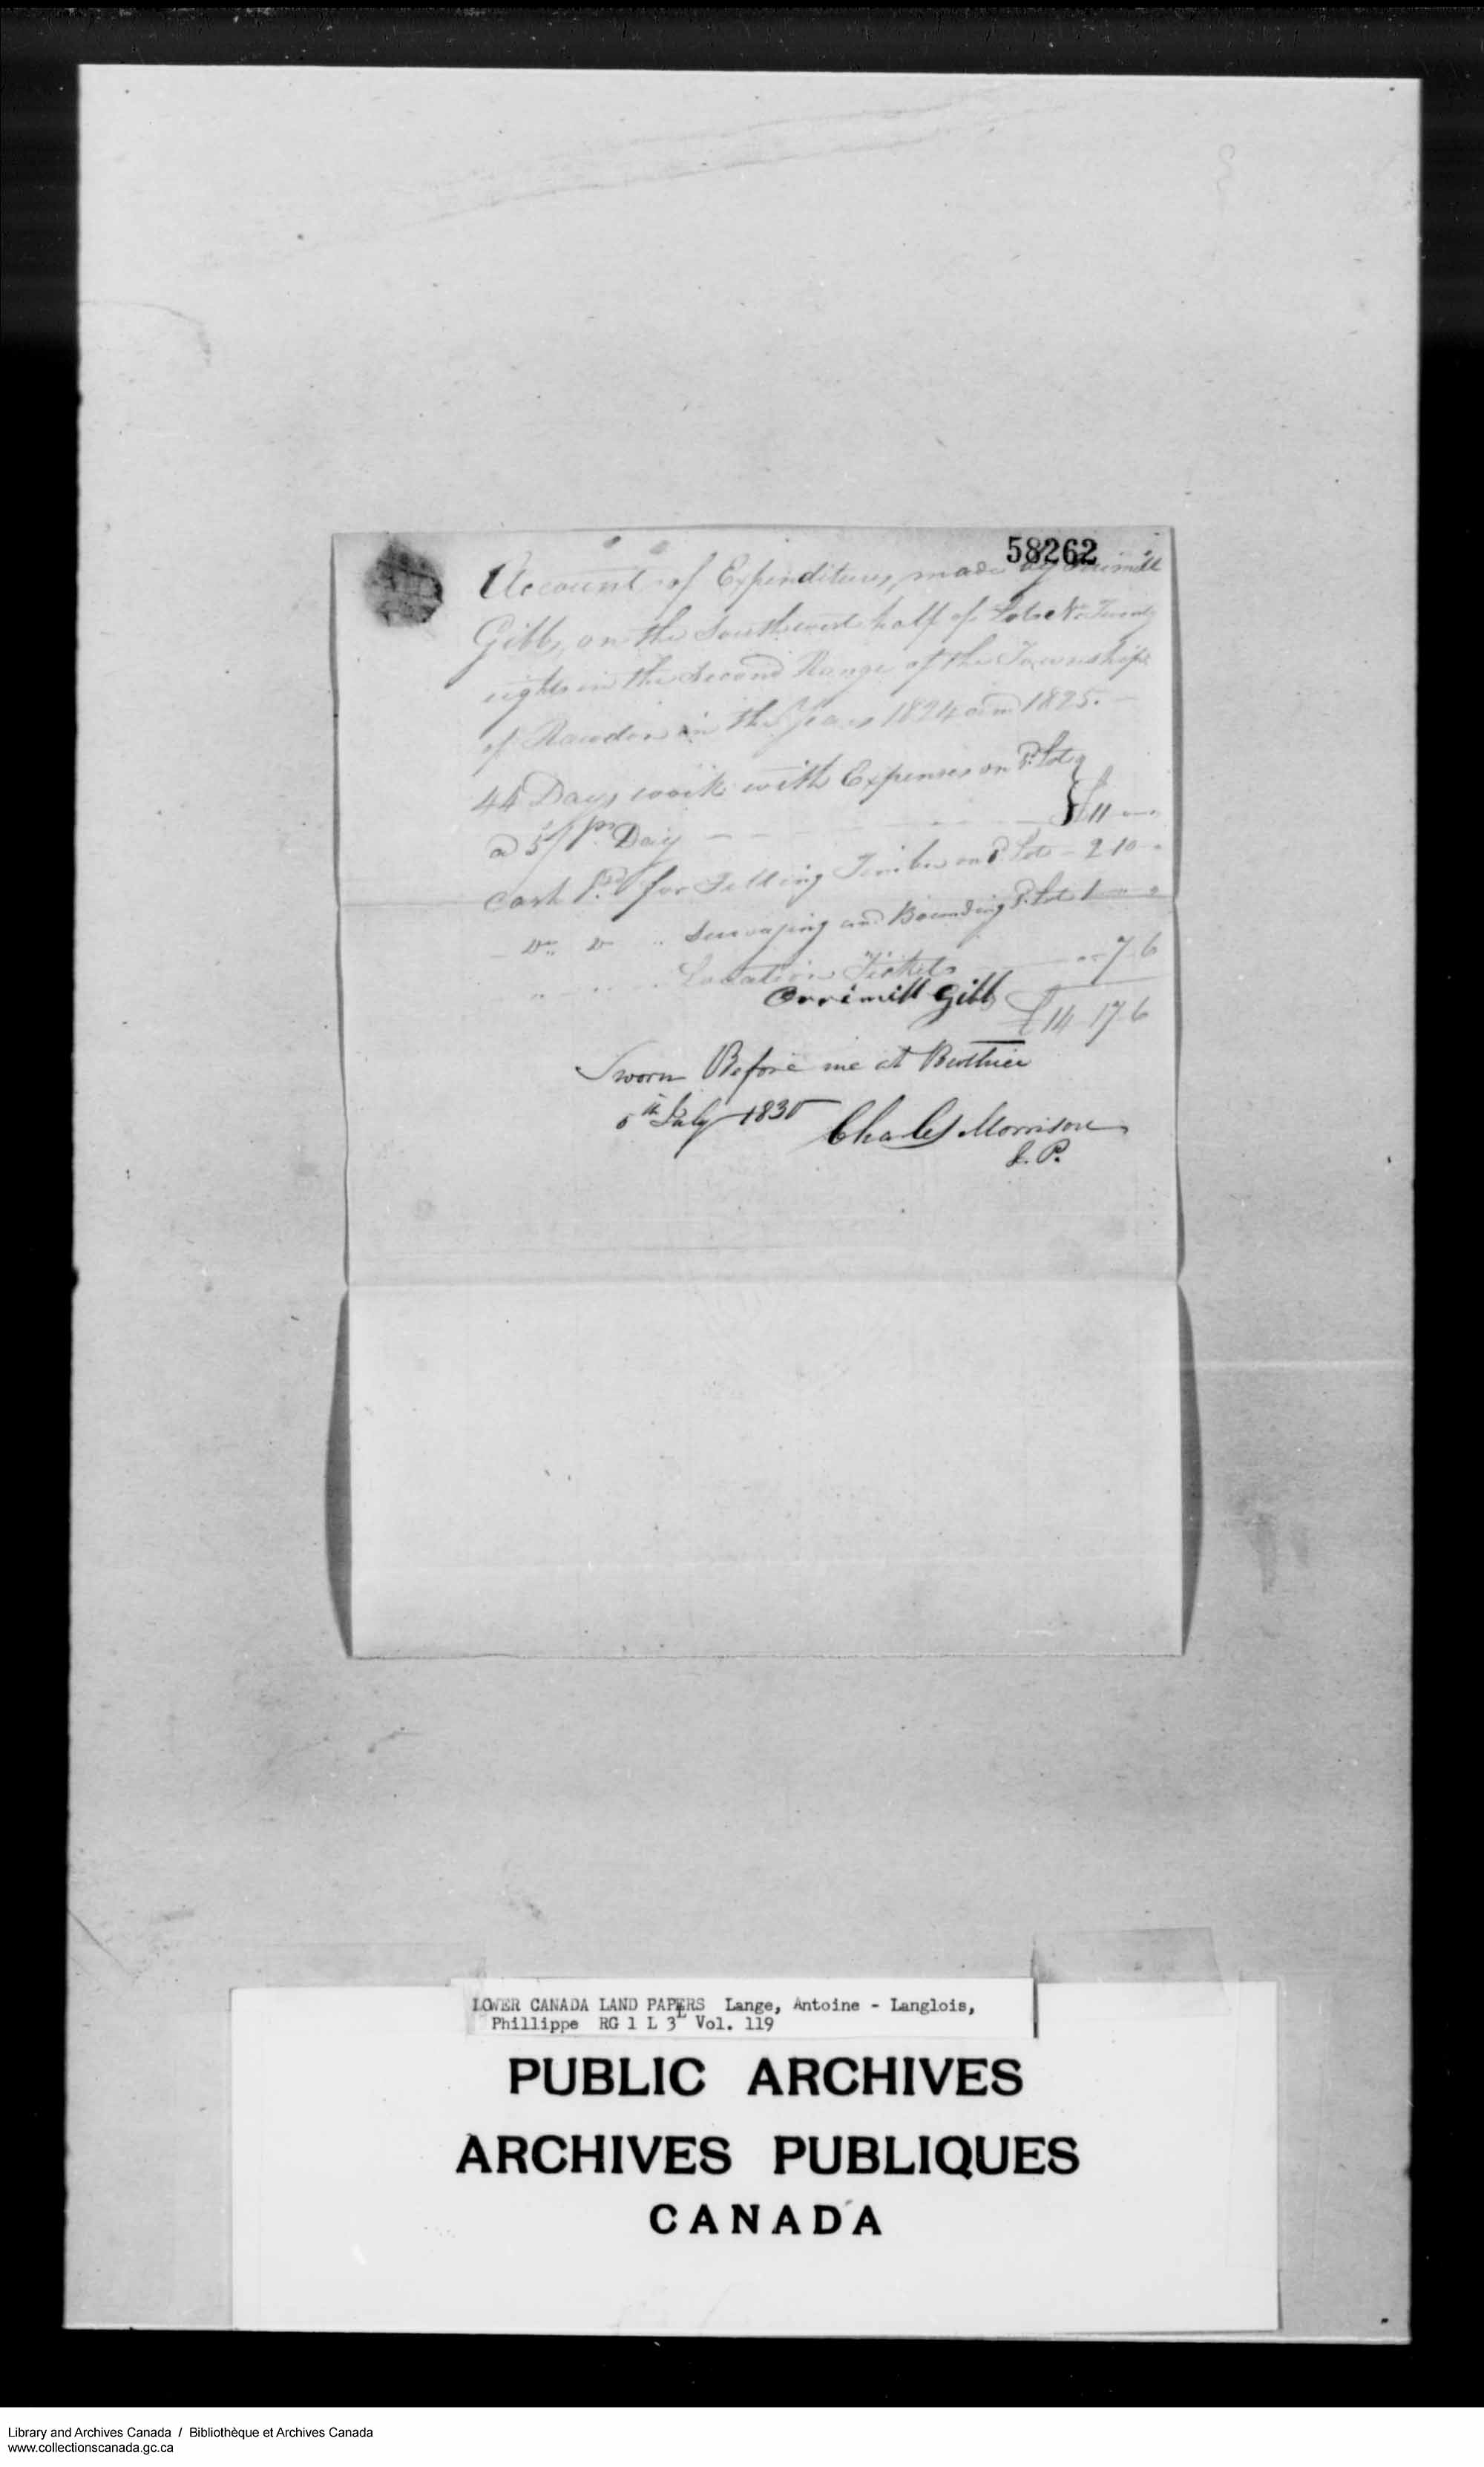 58262
Account of Expenditures, made by Orrimill
Gibb, on the Southwest half of Lot No Twenty
eight in the Second Range of the Township
of Rawdon in the Years 1824 and 1825. —
44 Days work with Expenses on Sd. Lot
a 5/ pr. Day — — — — — — } £11 " — "
Cash Pd. for Felling Timber on Sd. Lot — 2 10 — "
— Do. Do " Surveying and Bounding Sd. Lot 1 — " — "
" — " " Location Tickets — " — 7 6
Orrimill Gibb £14 – 17 6
Sworn Before me at Berthier
5th July 1830 Charles Morrison
J. P.
LOWER CANADA LAND PAPERS Lange, Antoine - Langlois,
Phillippe RG 1 L 3L Vol. 119
PUBLIC ARCHIVES
ARCHIVES PUBLIQUES
CANADA
Library and Archives Canada / Bibliothèque et Archives Canada
www.collectionscanada.gc.ca